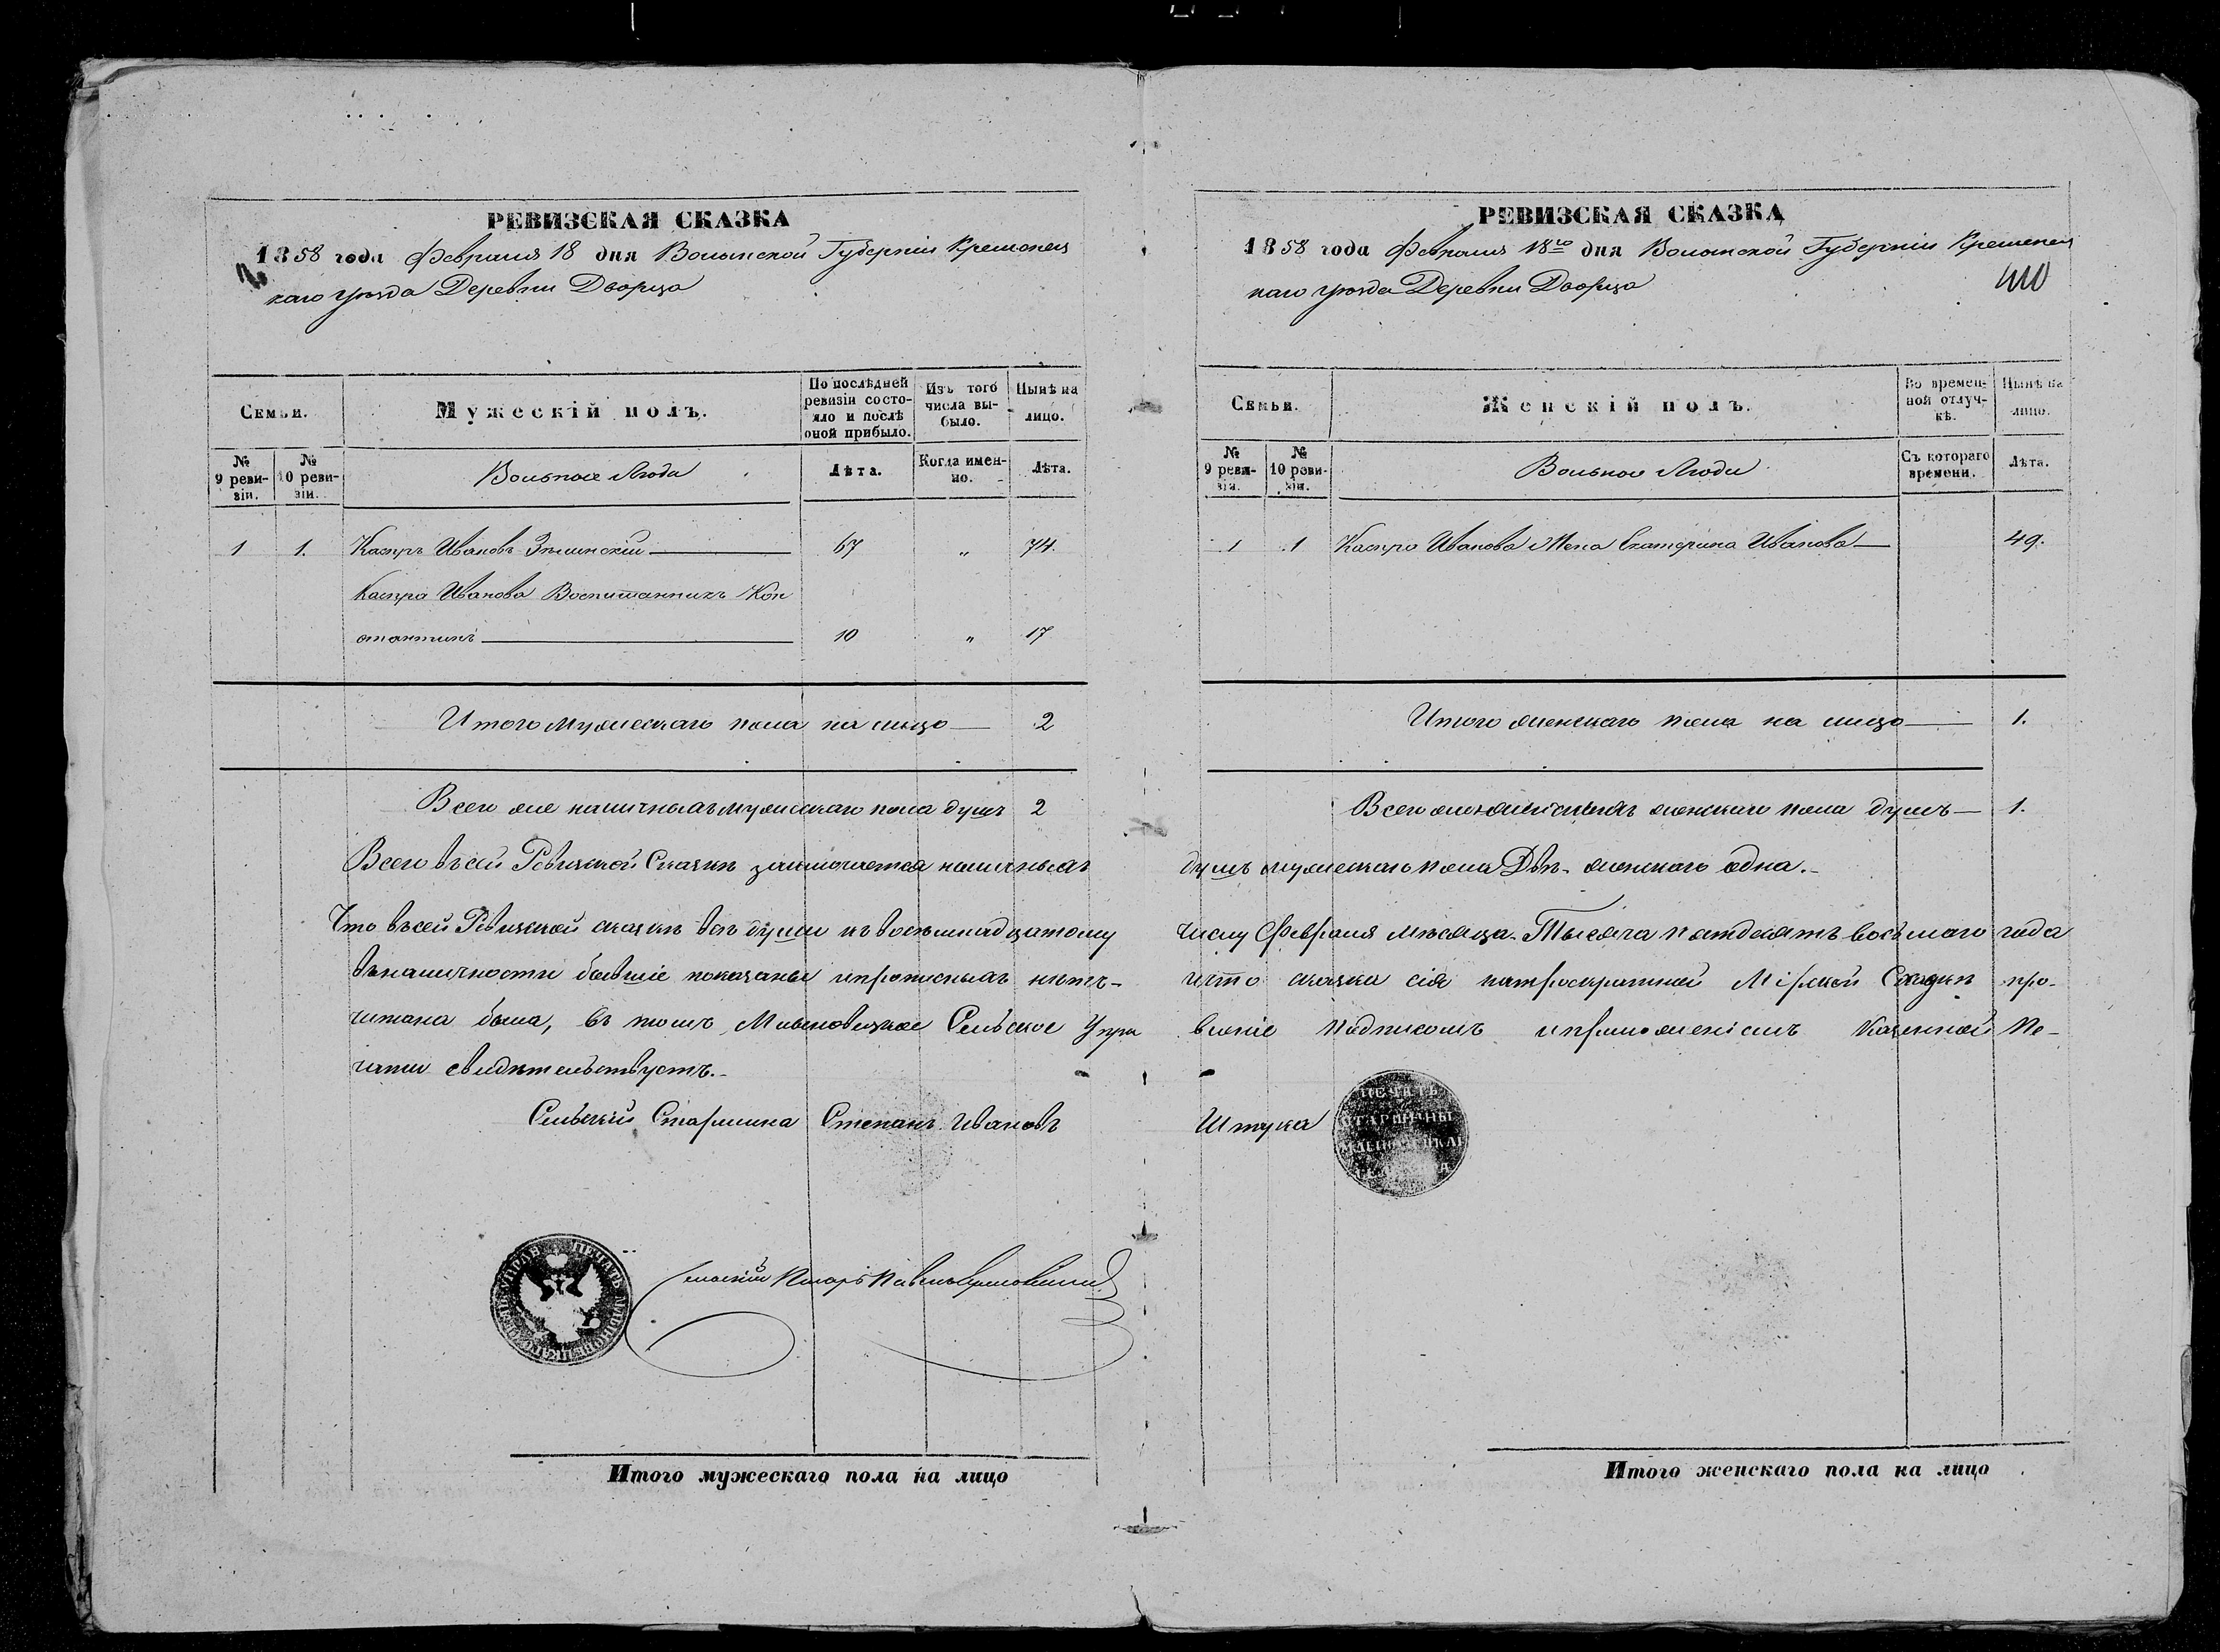 РЕВИЗСКАЯ СКАЗКА
1858 года Февраля 18 дня Волынской Губерніи Кременец
каго уѣзда Деревни Дворца
Семьи.
Мужескій полъ.
По послѣдней ревизіи состо-
яло и послѣ оной прибыло.
Изъ того числа вы-
было.
Нынѣ на лицо.
№ 9 реви-
зіи.
№ 10 реви-
зіи.
Вольные Люди
Лѣта.
Когда имен-
но.
Лѣта.
1 1. Каспръ Ивановъ 67 „ 74.
Каспра Иванова Воспитанникъ Кон
стантинъ 10 „ 17
Итого мужескаго пола на лицо 2
Всего же наличныхъ мужескаго пола душъ 2
Всего въ сей Ревизской Сказкѣ заключается наличныхъ
Что въ сей Ревизской сказкѣ всѣ души къ восемнадцатому
въ наличности бывшіе показаны и прописныхъ нѣтъ-
читана была, въ томъ Сельское Упра
чати свидѣтельствуетъ.
Сельскій Старшина Степанъ Ивановъ
Сельскій Писарь
Итого мужескаго пола на лицо
РЕВИЗСКАЯ СКАЗКА
1858 года Февраля 18го дня Волынской Губерніи Кременец
каго уѣзда Деревни Дворца
Семьи.
Женскій полъ.
Во времен-
ной отлуч-
кѣ.
Нынѣ на лицо.
№ 9 реви-
зіи.
№ 10 реви-
зіи.
Вольные Люди
Съ котораго времени.
Лѣта.
1 1 Каспра Иванова Жена Екатерина Иванова 49.
Итого женскаго пола на лицо 1.
Всего женскаго пола душъ 1.
душъ мужескаго пола Двѣ. женскаго одна.
числу Февраля мѣсяца. Тысяча пятдесятъ восьмаго года
что сказка сія Мірской Сходкѣ про-
вленіе подписомъ и приложеніемъ Казенной Пе-
Штука
ПЕЧАТЬ
СТАРШИНЫ
Итого женскаго пола на лицо